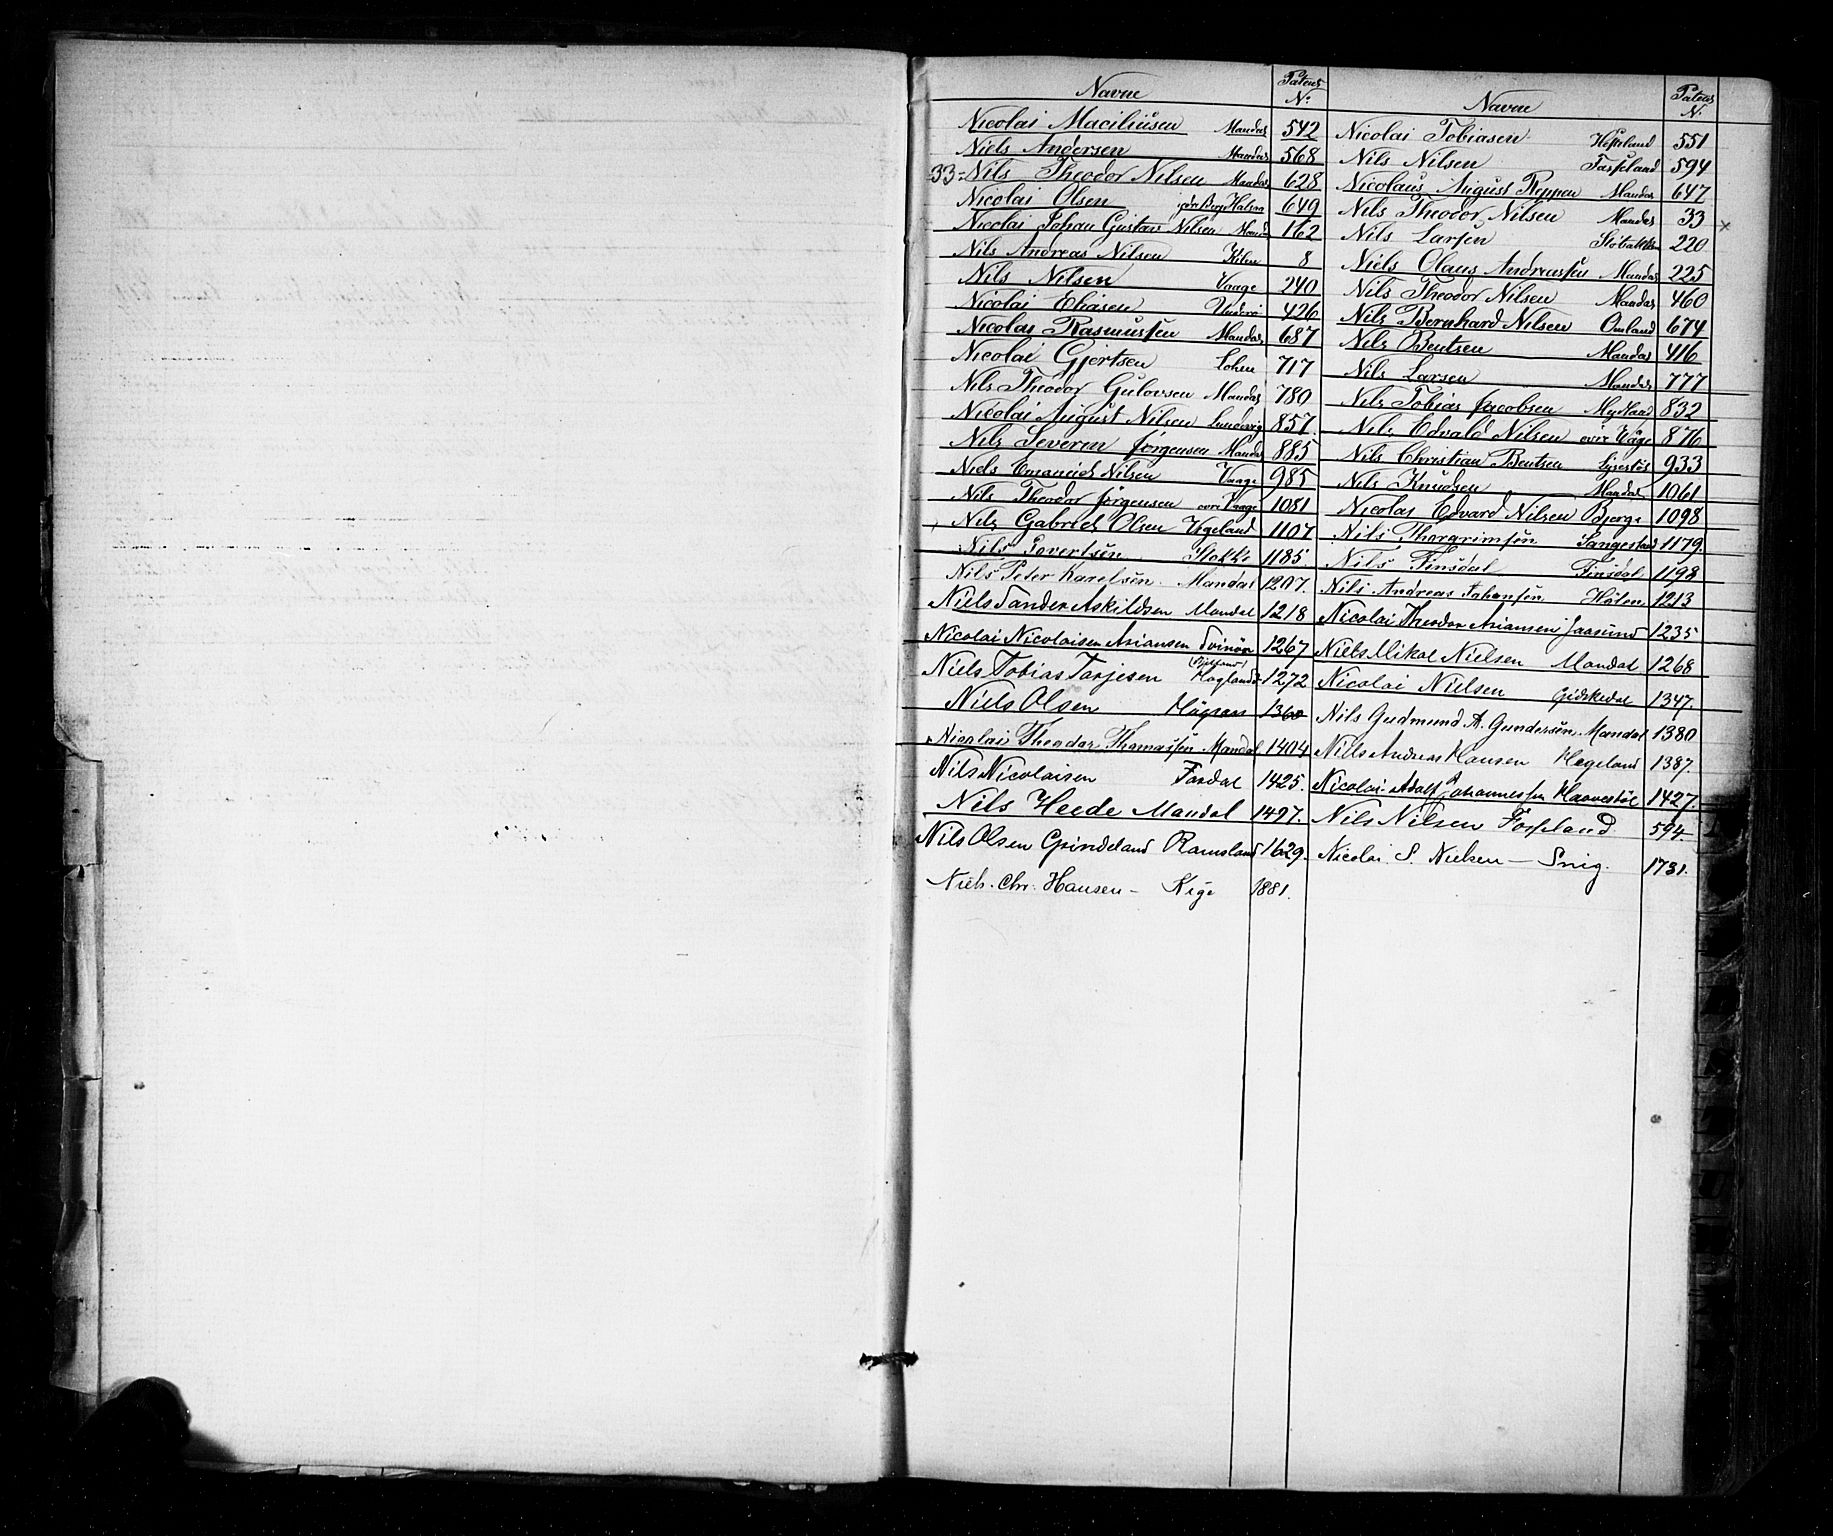 Navne Patent N: Navne Patent N:
Nicolai Maciliusen Mandal 542
Niels Andersen Mandal 568
33 = Nils Theodor Nilsen Mandal 628
Nicolai Olsen 649
Nicolai Johan Gustav Nilsen Mandal 162
Nils Andreas Nilsen Kilen 8
Nils Nilsen Vaage 240
Nicolai Eliasen 426
Nicolai Rasmussen Mandal 687
Nicolai Gjertsen Lohne 717
Nils Theodor Gulovsen Mandal 780
Nicolai August Nilsen Lundevig 857.
Nils Severin Jørgensen Mandal 885
Niels Emanuel Nilsen Vaage 985
Nils Theodor Jørgensen øvre Vaage 1081
Nils Gabriel Olsen Vigeland 1107
Nils Govertsen Stokke 1185
Nils Peter Karelsen Mandal 1207.
Niels Sander Askildsen Mandal 1218
Nicolai Nicolaisen Asiansen Svinør 1267
Niels Tobias Tarjesen Hogland 1272
Niels Olsen 1360
Nicolai Theodor Thomassen Mandal 1404
Nils Nicolaisen Fardal 1425.
Nils Heede Mandal 1497.
Nils Olsen Grindeland Ramsland 1629.
Niels Chr: Hansen - Kige 1881.
Nicolai Tobiasen Hesteland 551
Nils Nilsen Fasseland 594
Nicolaus August Reppen Mandal 647
Nils Theodor Nilsen Mandal 33 x
Nils Larsen 220
Niels Olaus Andreassen Mandal 225
Nils Theodor Nilsen Mandal 460
Nils Bernhard Nilsen Omland 674
Nils Bentsen Mandal 416
Nils Larsen Mandal 777
Nils Tobias Jacobsen Mydland 832
Nils Edvald Nilsen øvre Våge 876
Nils Christian Bentsen 933
Nils Knudsen Mandal 1061
Nicolai Edvard Nilsen Bjerge 1098
Nils Thorgrimsen 1179.
Nils Finsdal Finsdal 1198
Nils Andreas Johansen Hålen 1213
Nicolai Theodor Asiansen Jaasund 1235
Niels Mikal Nielsen Mandal 1268
Nicolai Nielsen Gidskedal 1347.
Nils Gudmund A. Gundersen Mandal 1380
Nills Andreas Hansen Hegeland 1387.
Nicolai Adolf Johannessen Haavestøl 1427
Nils Nilsen Fosseland 594
Nicolai S. Nielsen - Snig. 1731.